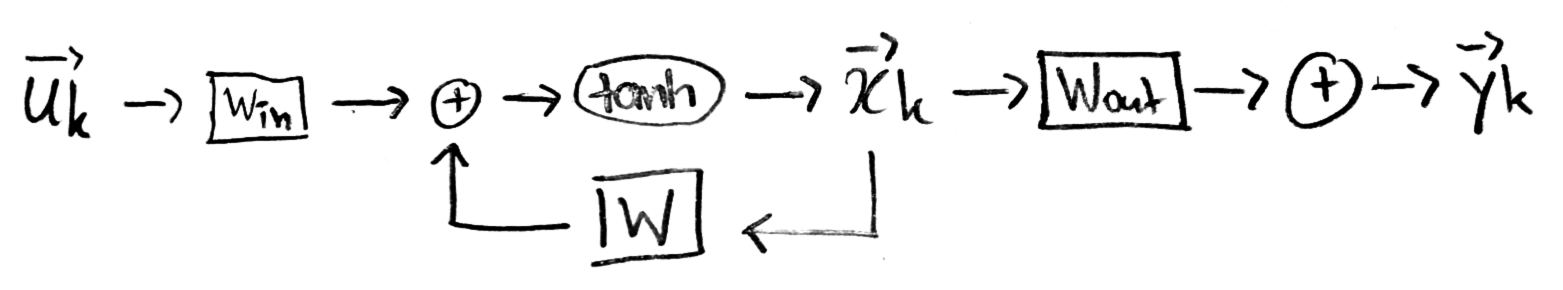 u⃗k → Win → + → tanh → x⃗k → Wout → + → y⃗k
W